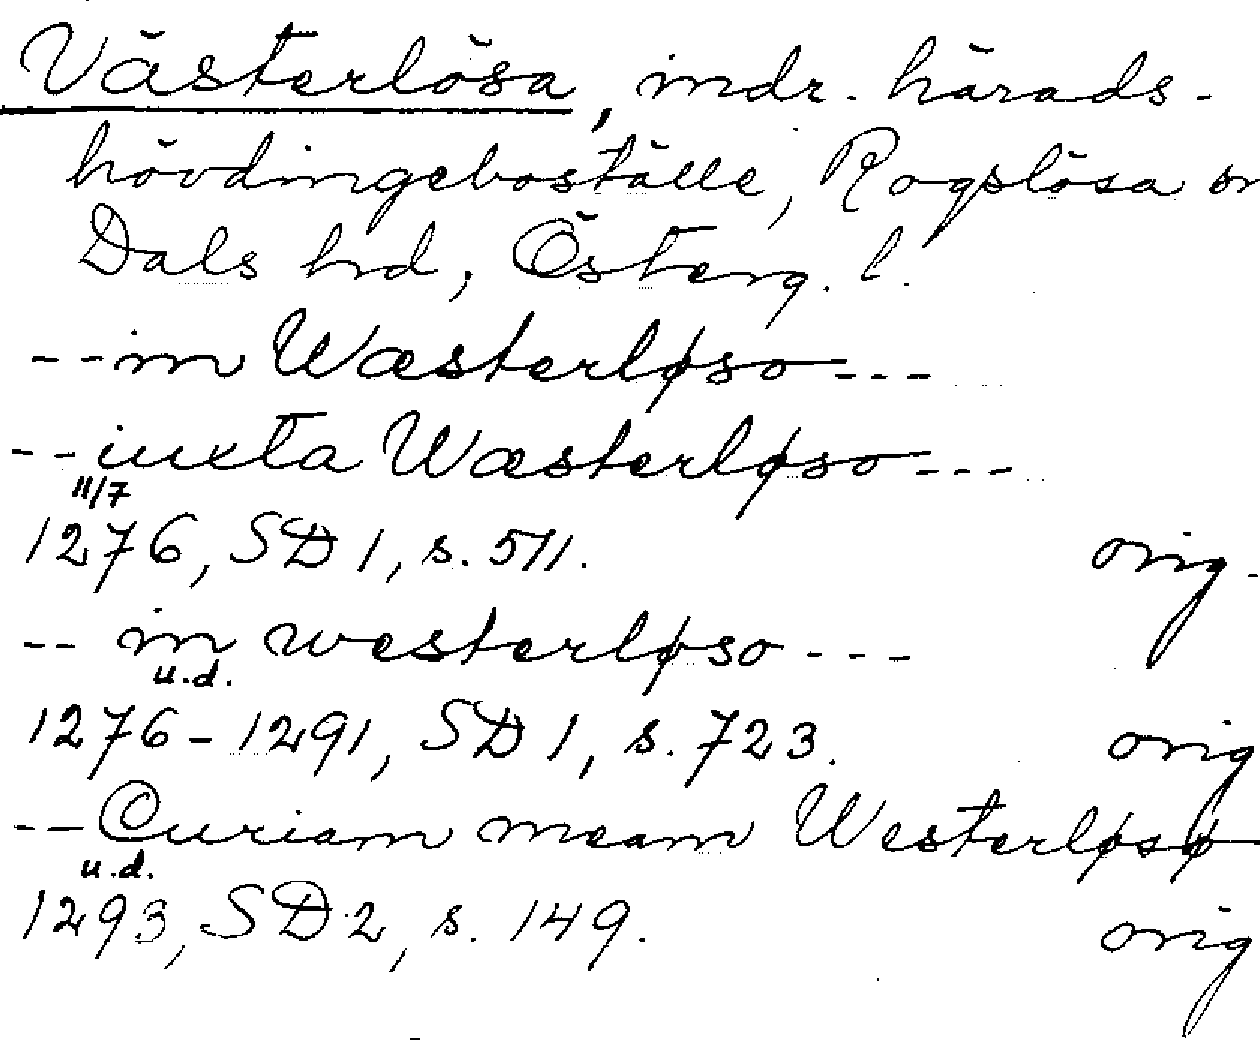 Västerlösa, mdr. härads-
hövdingeboställe, Rogslösa sn
Dals hrd, Österg. l.
--in Wæsterløso---
--iuxta Wæsterløso---
11/7
1276, SD 1, s. 511. orig.
-- in westerløso---
u.d.
1276-1291, SD 1, s. 723. orig
--Curiam meam Westerløsø
u.d.
1293, SD 2, s. 149. orig